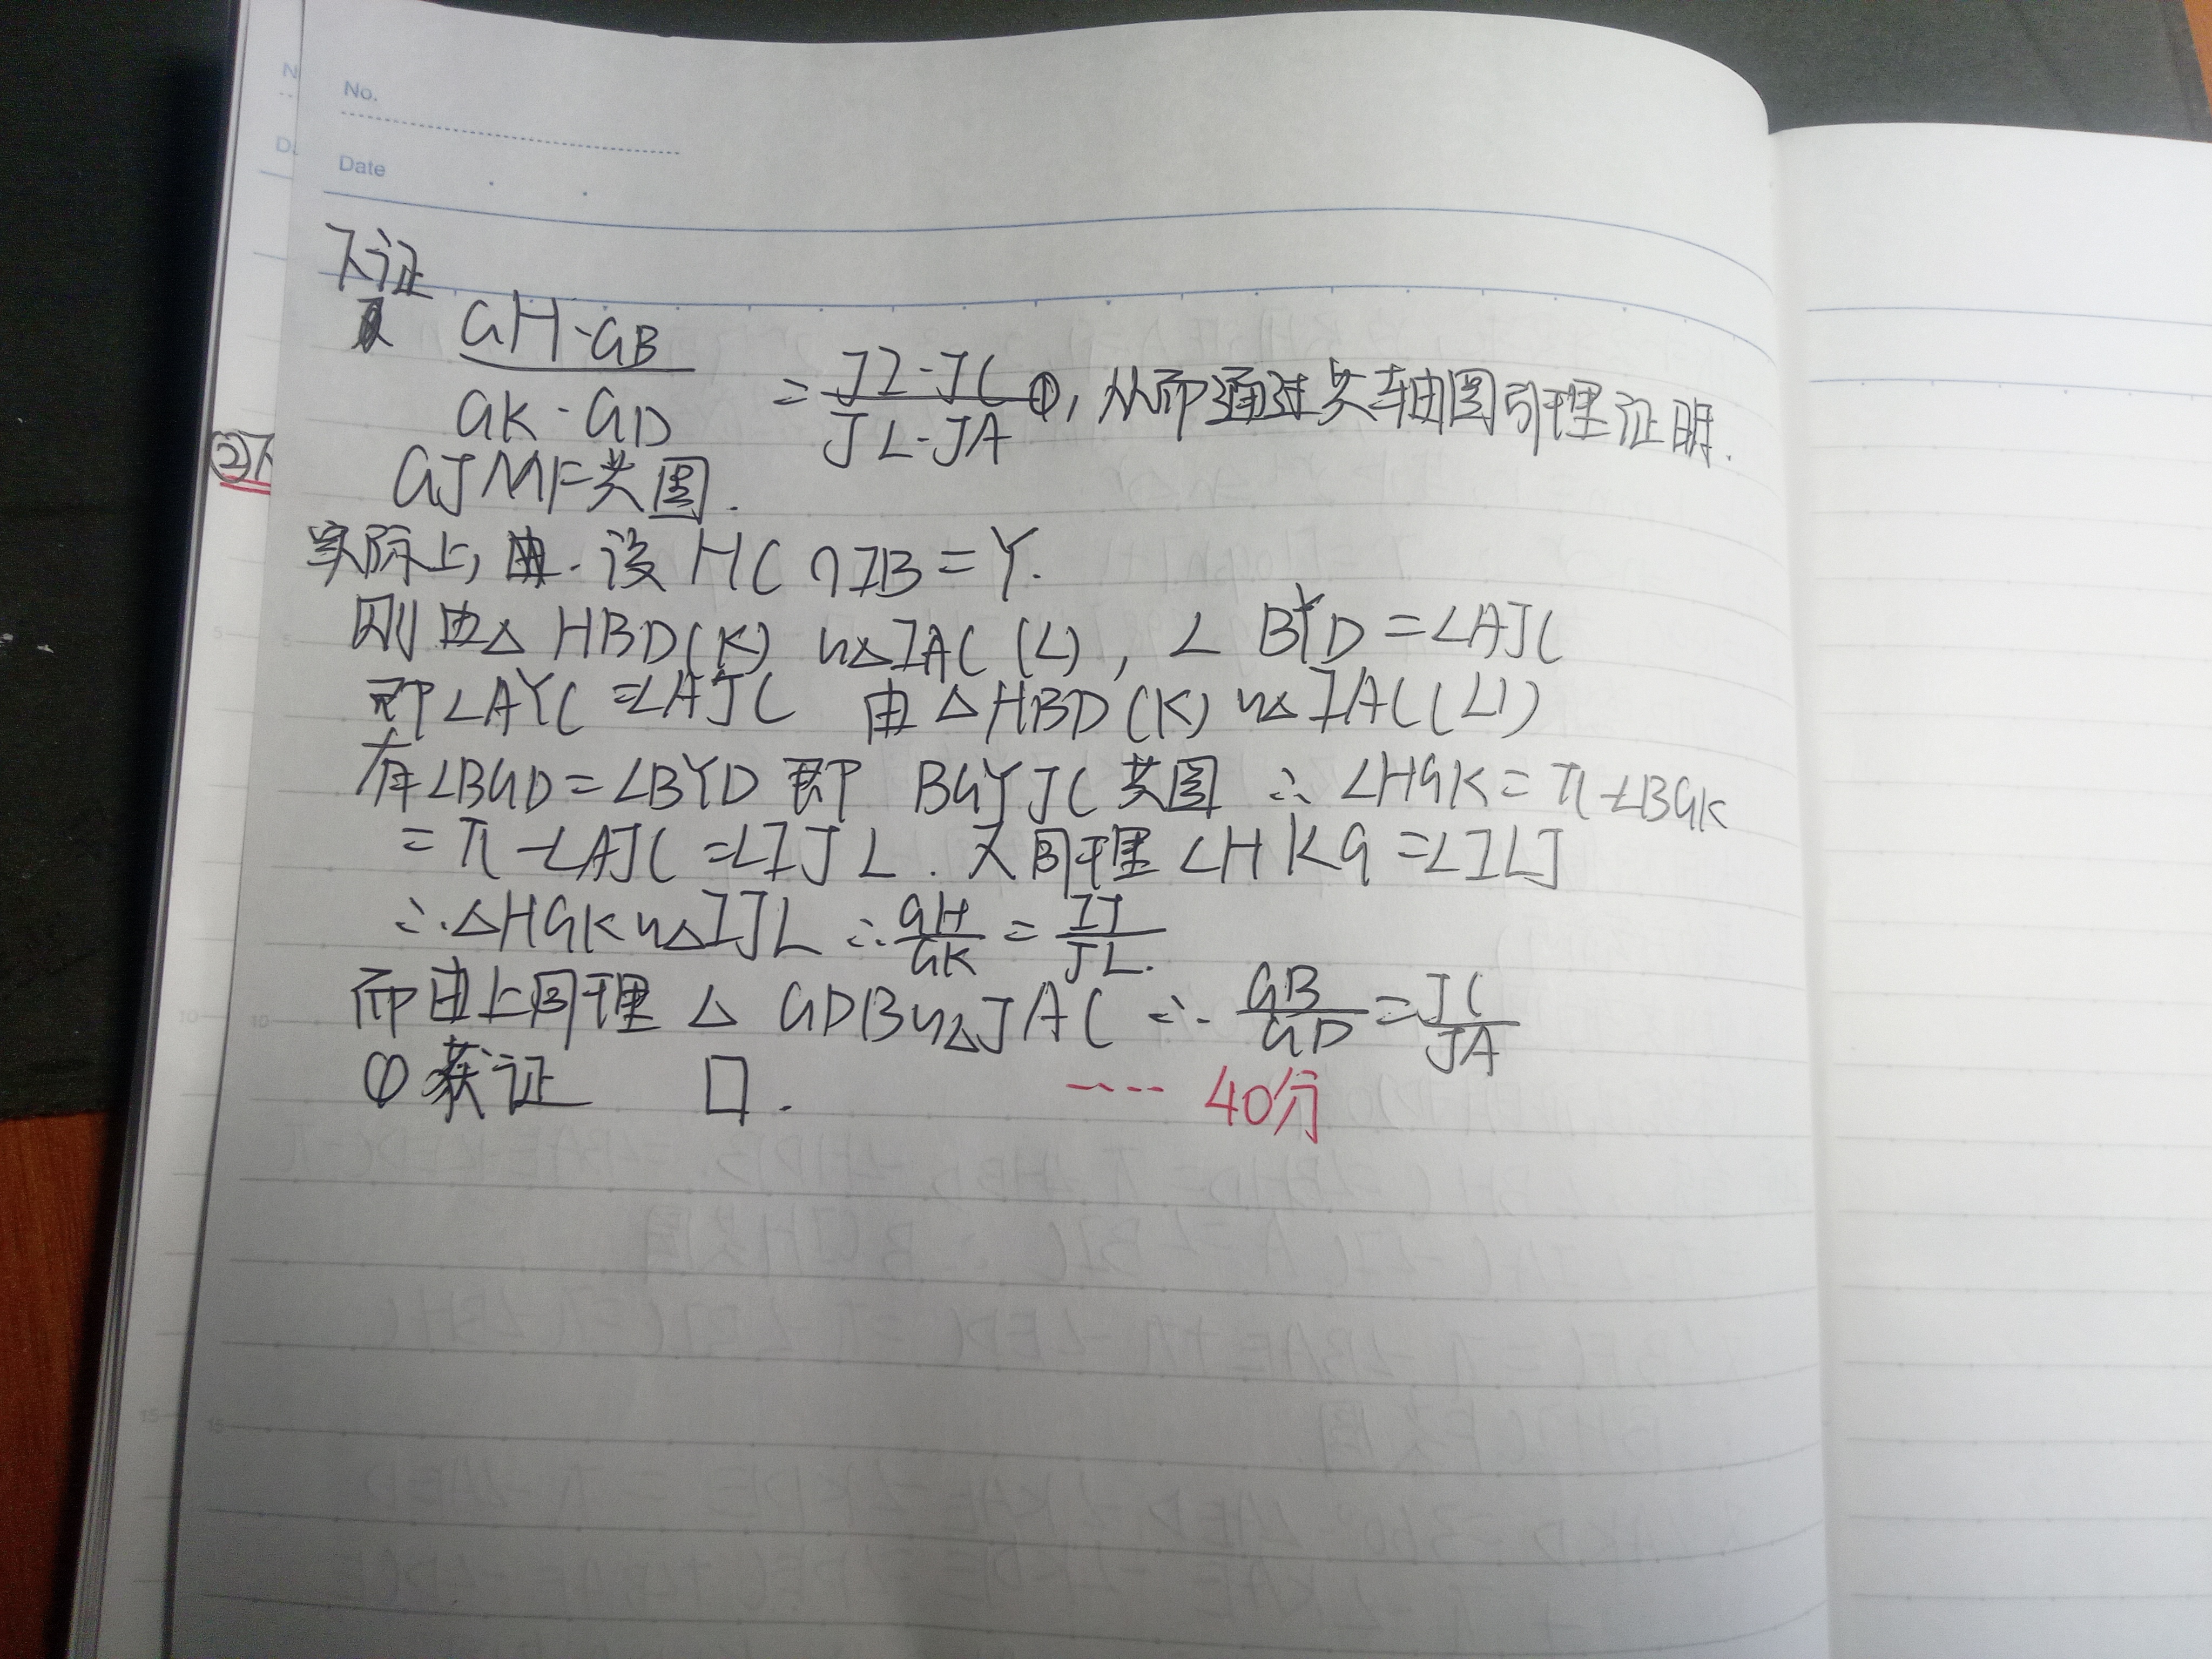 No.
Date
下证
GH·GB / GK·GD = JI·JC / JL·JA ①, 从而通过共轴圆引理证明.
GJMF共圆.
②下
实际上, 由. 设 HC∩IB=Y.
则由△HBD(K)∽△IAC(L), ∠BYD=∠AJC
即∠AYC=∠AJC 由△HBD(K)∽△IAC(L)
有∠BGD=∠BYD 即 BGYJC共圆 ∴∠HGK=π-∠BGK
=π-∠AJC=∠IJL. 又同理∠HKG=∠ILJ
∴△HGK∽△IJL ∴GH/GK=IJ/JL.
而由上同理 △GDB∽△JAC ∴ GB/GD=JC/JA
①获证 □.
---- 40分
5
5
10
10
15
15